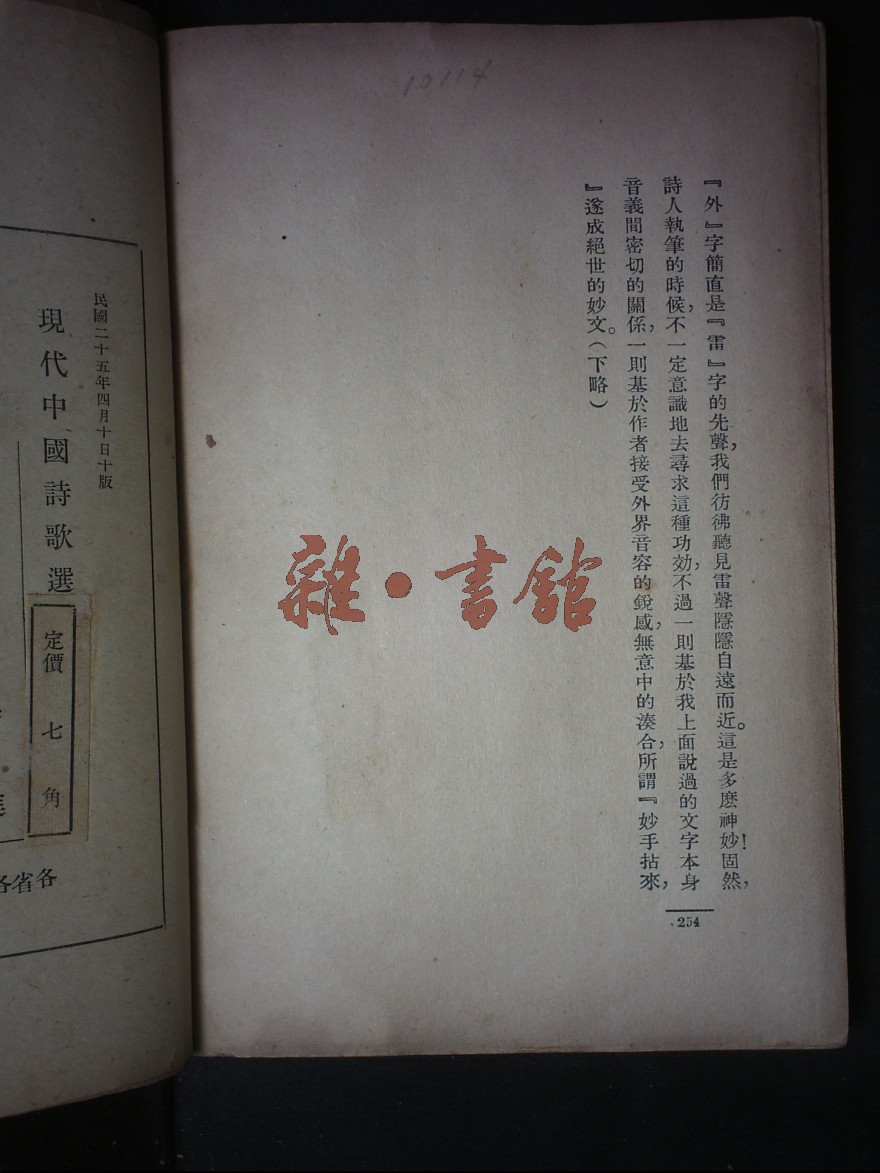 10114
『外』字簡直是『雷』字的先聲，我們彷彿聽見雷聲隱隱自遠而近。這是多麽神妙！固然，
詩人執筆的時候，不一定意識地去尋求這種功効，不過一則基於我上面說過的文字本身
音義間密切的關係，一則基於作者接受外界音容的銳感，無意中的湊合，所謂『妙手拈來，
』遂成絕世的妙文。（下略）
254
雜·書館
民國二十五年四月十日十版
現代中國詩歌選
定價七角
各省各